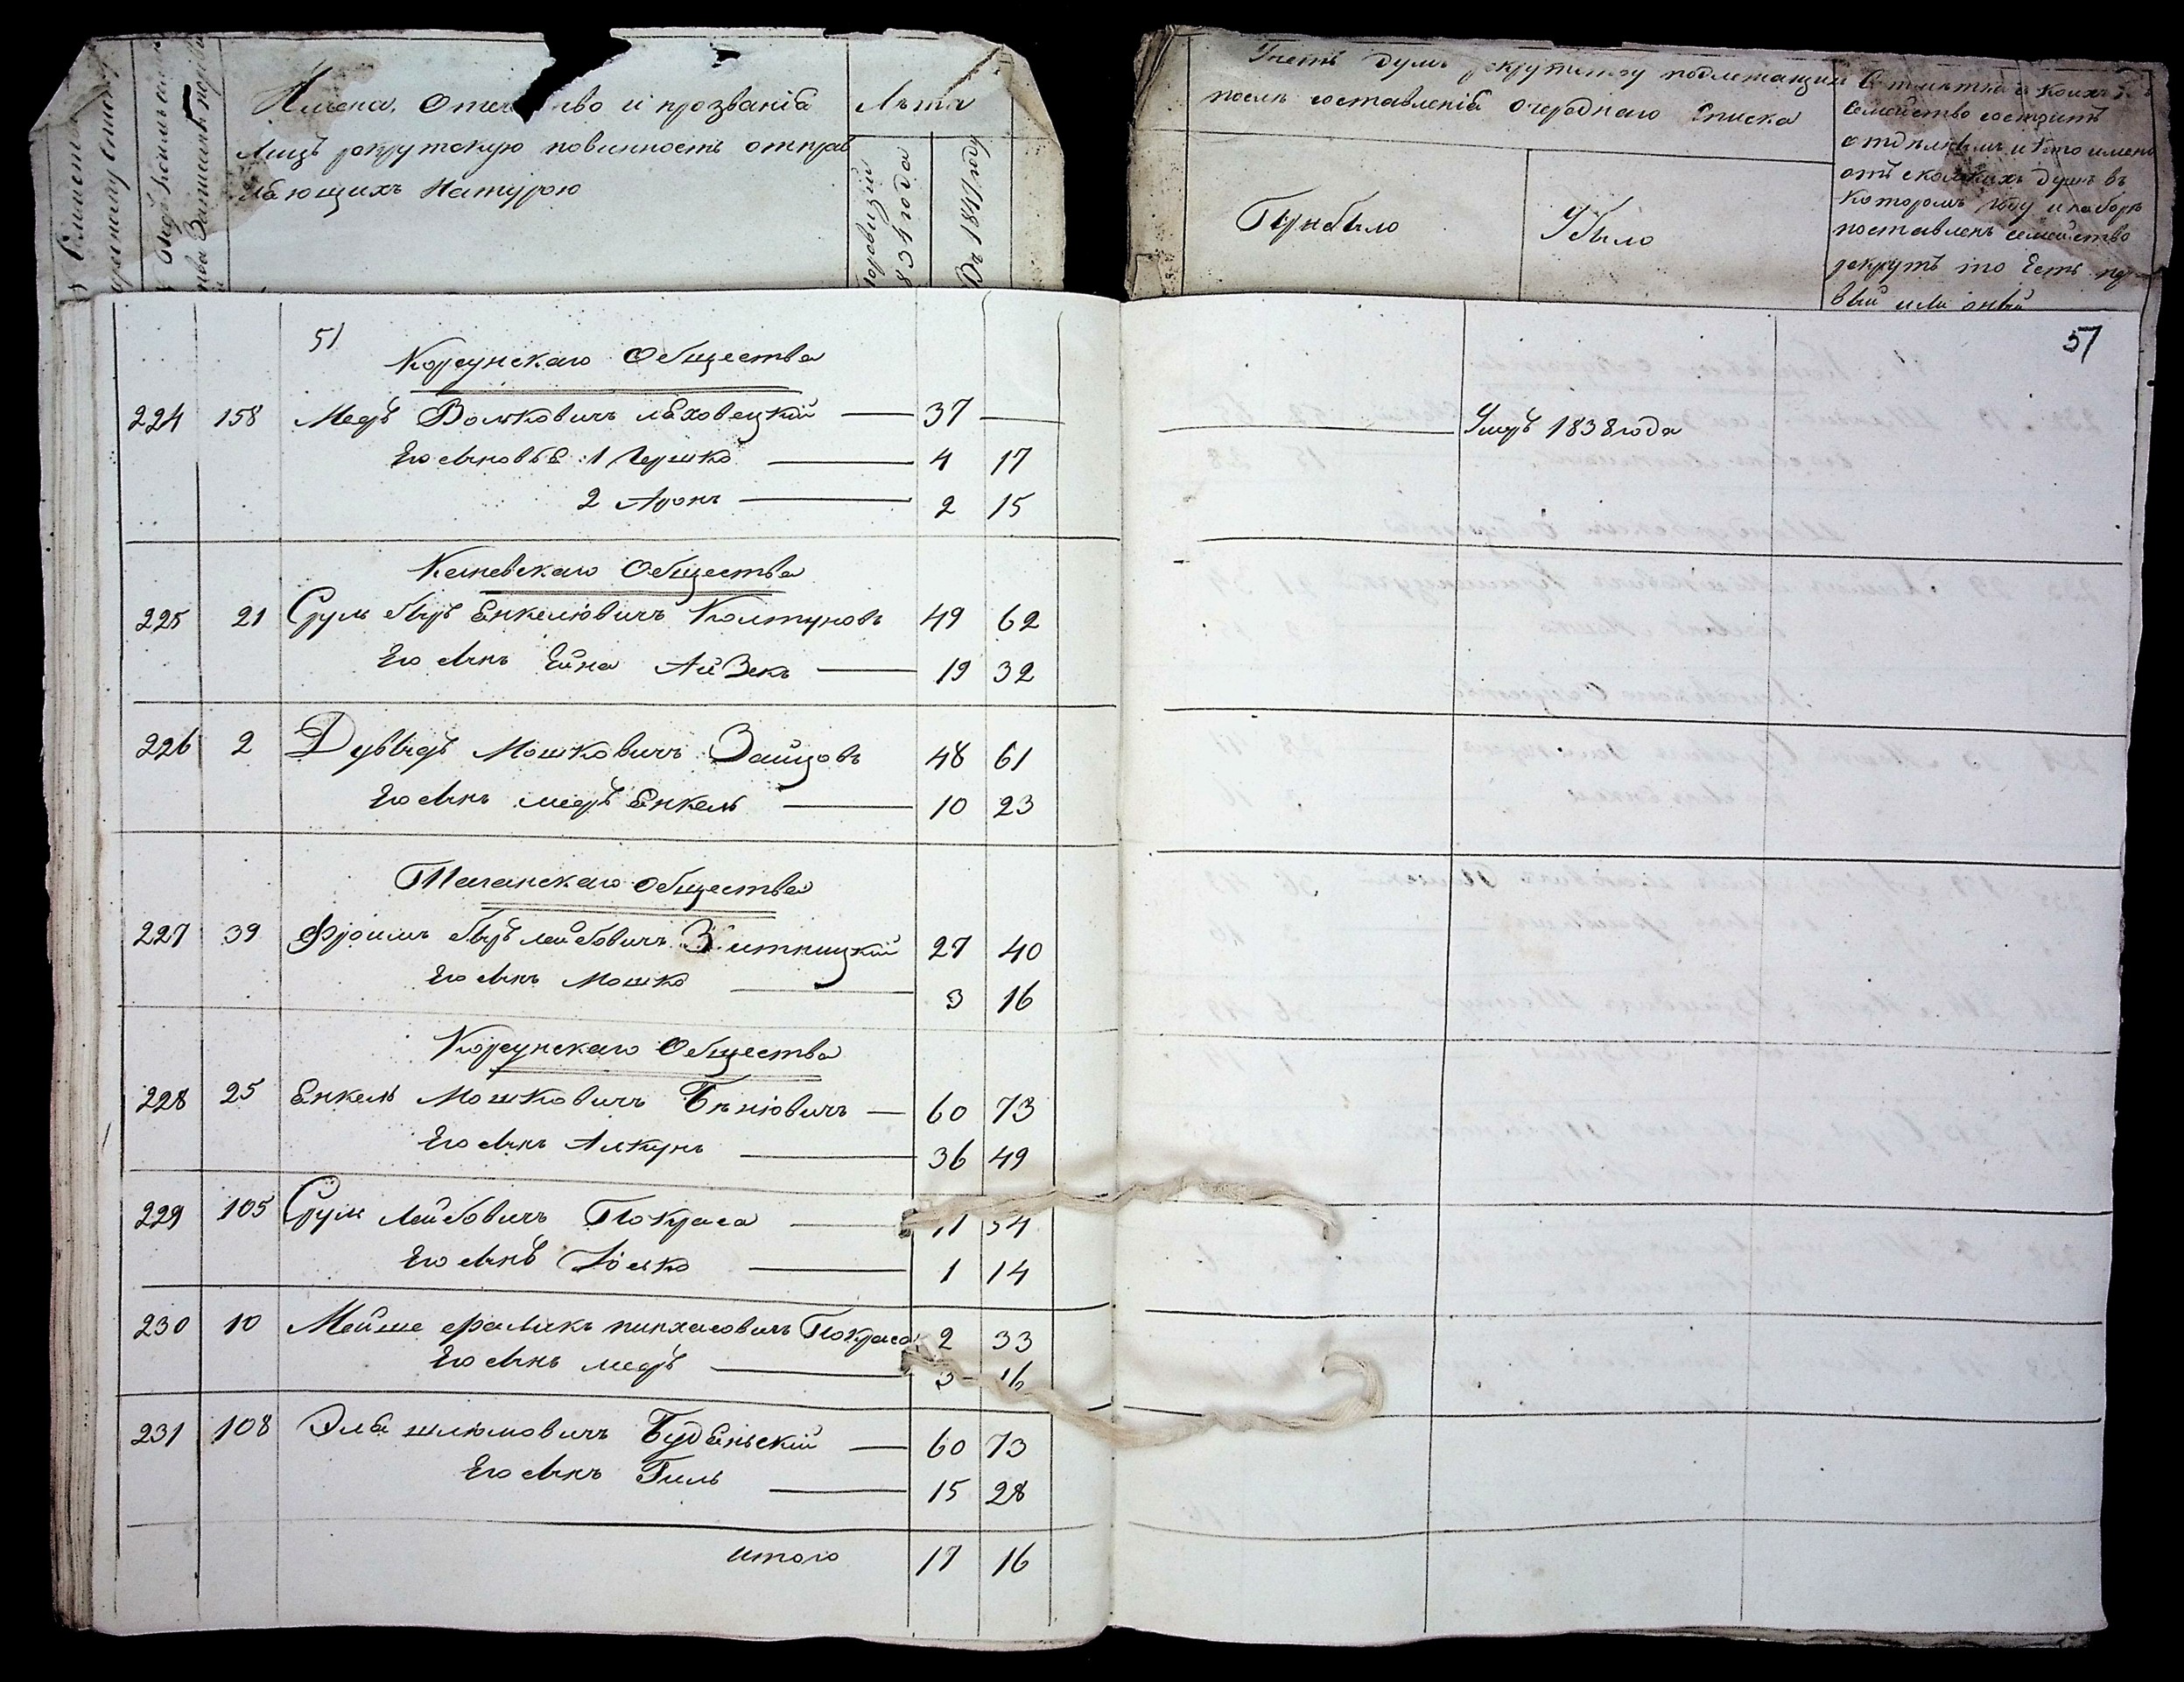 Имена, Отечество и прозванія
Лицъ рекрутскую повинность отправ
ляющихъ Натурою
Лѣта
по ревизіи
1834 года
въ 1847 г
Учетъ душъ рекрутству подлежащихъ
послѣ составленія очереднаго Списка
Прибыло
Убыло
семейство состоитъ
отъ сколькихъ душъ въ
которомъ году и наборѣ
поставленъ семейство
рекрутъ то Есть пер
вый или оный
51
57
Корсунскаго Общества
224 158 Меерь Волковичъ Ляховецкій 37 — Умеръ 1838 года
Его сыновья 1 Гершко 4 17
2 Аронъ 2 15
Каневскаго Общества
225 21 Сруль беръ Енкелювичъ Колтуновъ 49 62
Его сынъ Ейна Айзекъ 19 32
226 2 Дувидъ Мошковичъ Зайцовъ 48 61
Его сынъ меерь Енкель 10 23
Таганскаго Общества
227 39 Фроимъ беръ лейбовичъ Житницкій 27 40
Его сынъ Мошко 3 16
Корсунскаго Общества
228 25 Енкель Мошковичъ Бѣнювичъ — 60 73
Его сынъ Алкунъ 36 49
229 105 Сруль Лейбовичъ Покраса 54
Его сынъ Іосько 1 14
230 10 Мейше пинхасовичъ Покраса 2 33
Его сынъ меерь 3 16
231 108 Эля шлюмовичъ Будянскій — 60 73
Его сынъ Гиль 15 28
итого 17 16